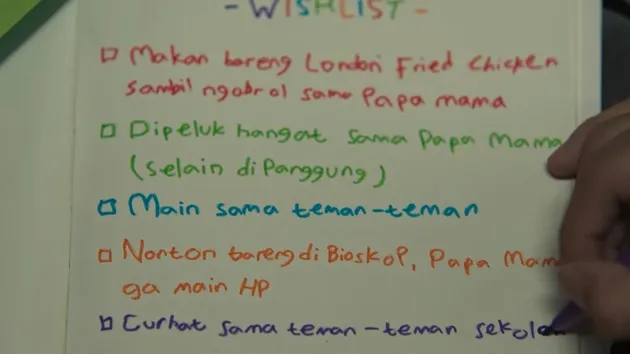 - WISHLIST -
Makan bareng London Fried Chicken
sambil ngobrol sama Papa mama
Dipeluk hangat sama Papa Mama
(selain di Panggung)
Main sama teman-teman
Nonton bareng di Bioskop, Papa Mama
ga main HP
Curhat sama teman-teman sekolah